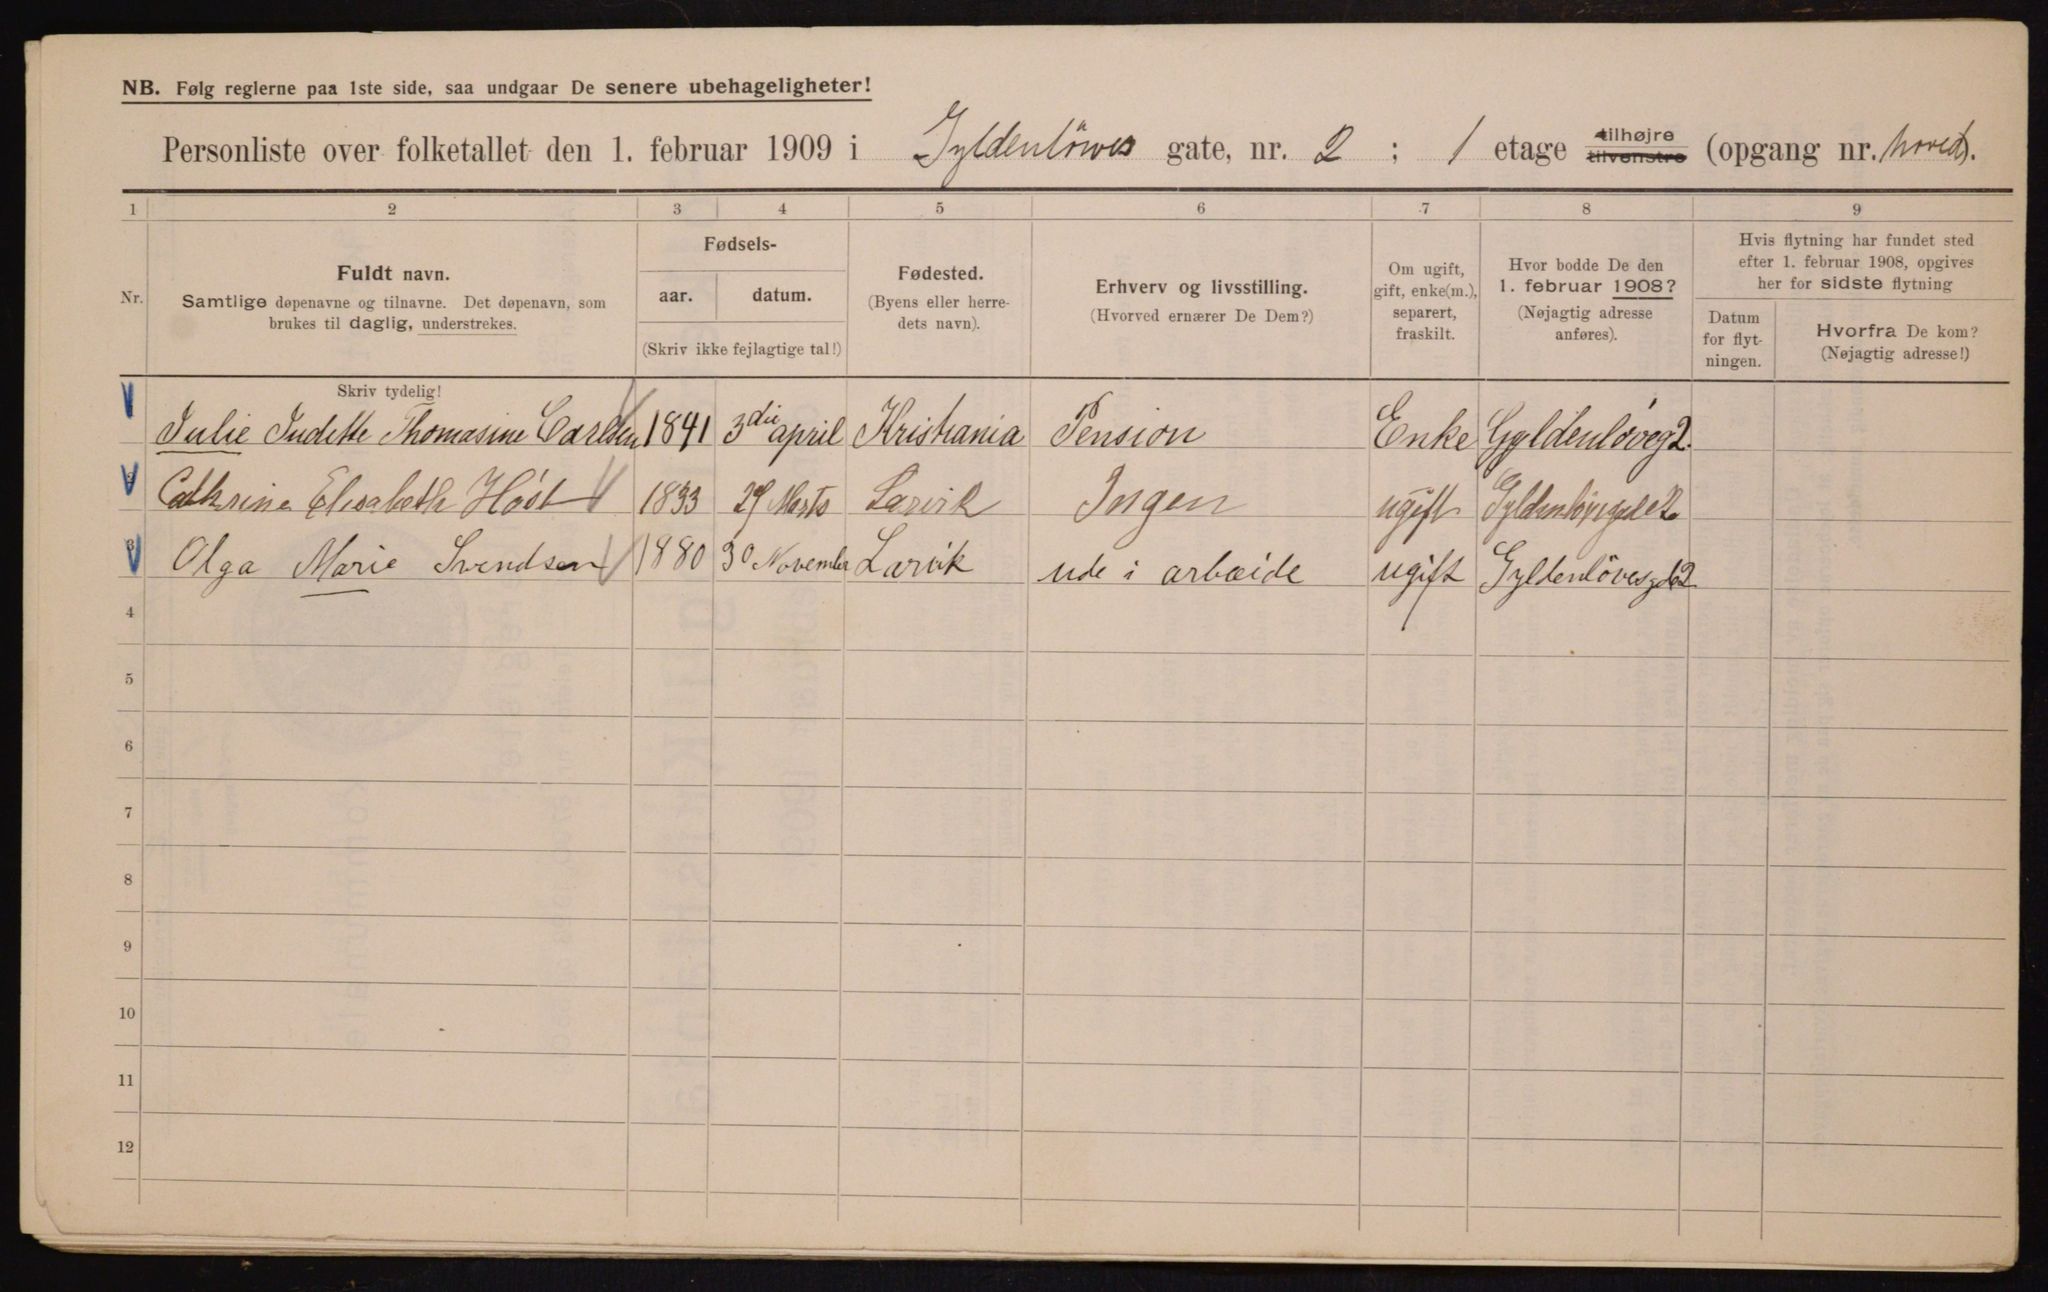 NB. Følg reglerne paa 1ste side, saa undgaar De senere ubehageligheter!
Personliste over folketallet den 1. februar 1909 i Gyldenlöves gate, nr. 2 ; 1 etage tilhøjre tilvenstre (opgang nr. hoved).
1 2 3 4 5 6 7 8 9
Nr.
Fuldt navn.
Samtlige døpenavne og tilnavne. Det døpenavn, som
brukes til daglig, understrekes.
Skriv tydelig!
Fødsels-
aar. datum.
(Skriv ikke fejlagtige tal!)
Fødested.
(Byens eller herre-
dets navn).
Erhverv og livsstilling.
(Hvorved ernærer De Dem?)
Om ugift,
gift, enke(m.),
separert,
fraskilt.
Hvor bodde De den
1. februar 1908?
(Nøjagtig adresse
anføres).
Hvis flytning har fundet sted
efter 1. februar 1908, opgives
her for sidste flytning
Datum
for flyt-
ningen.
Hvorfra De kom?
(Nøjagtig adresse!)
Julie Judette Thomasine Carlsen 1841 3die april Kristiania Pension Enke Gyldenløveg 2.
2 Cathrine Elisabeth Høst 1833 Marts Larvik Ingen ugift
3 Olga Marie Svendsen 1880 30 November Larvik ude i arbeide ugift Gyldenlövesgd 2
4
5
6
7
8
9
10
11
12